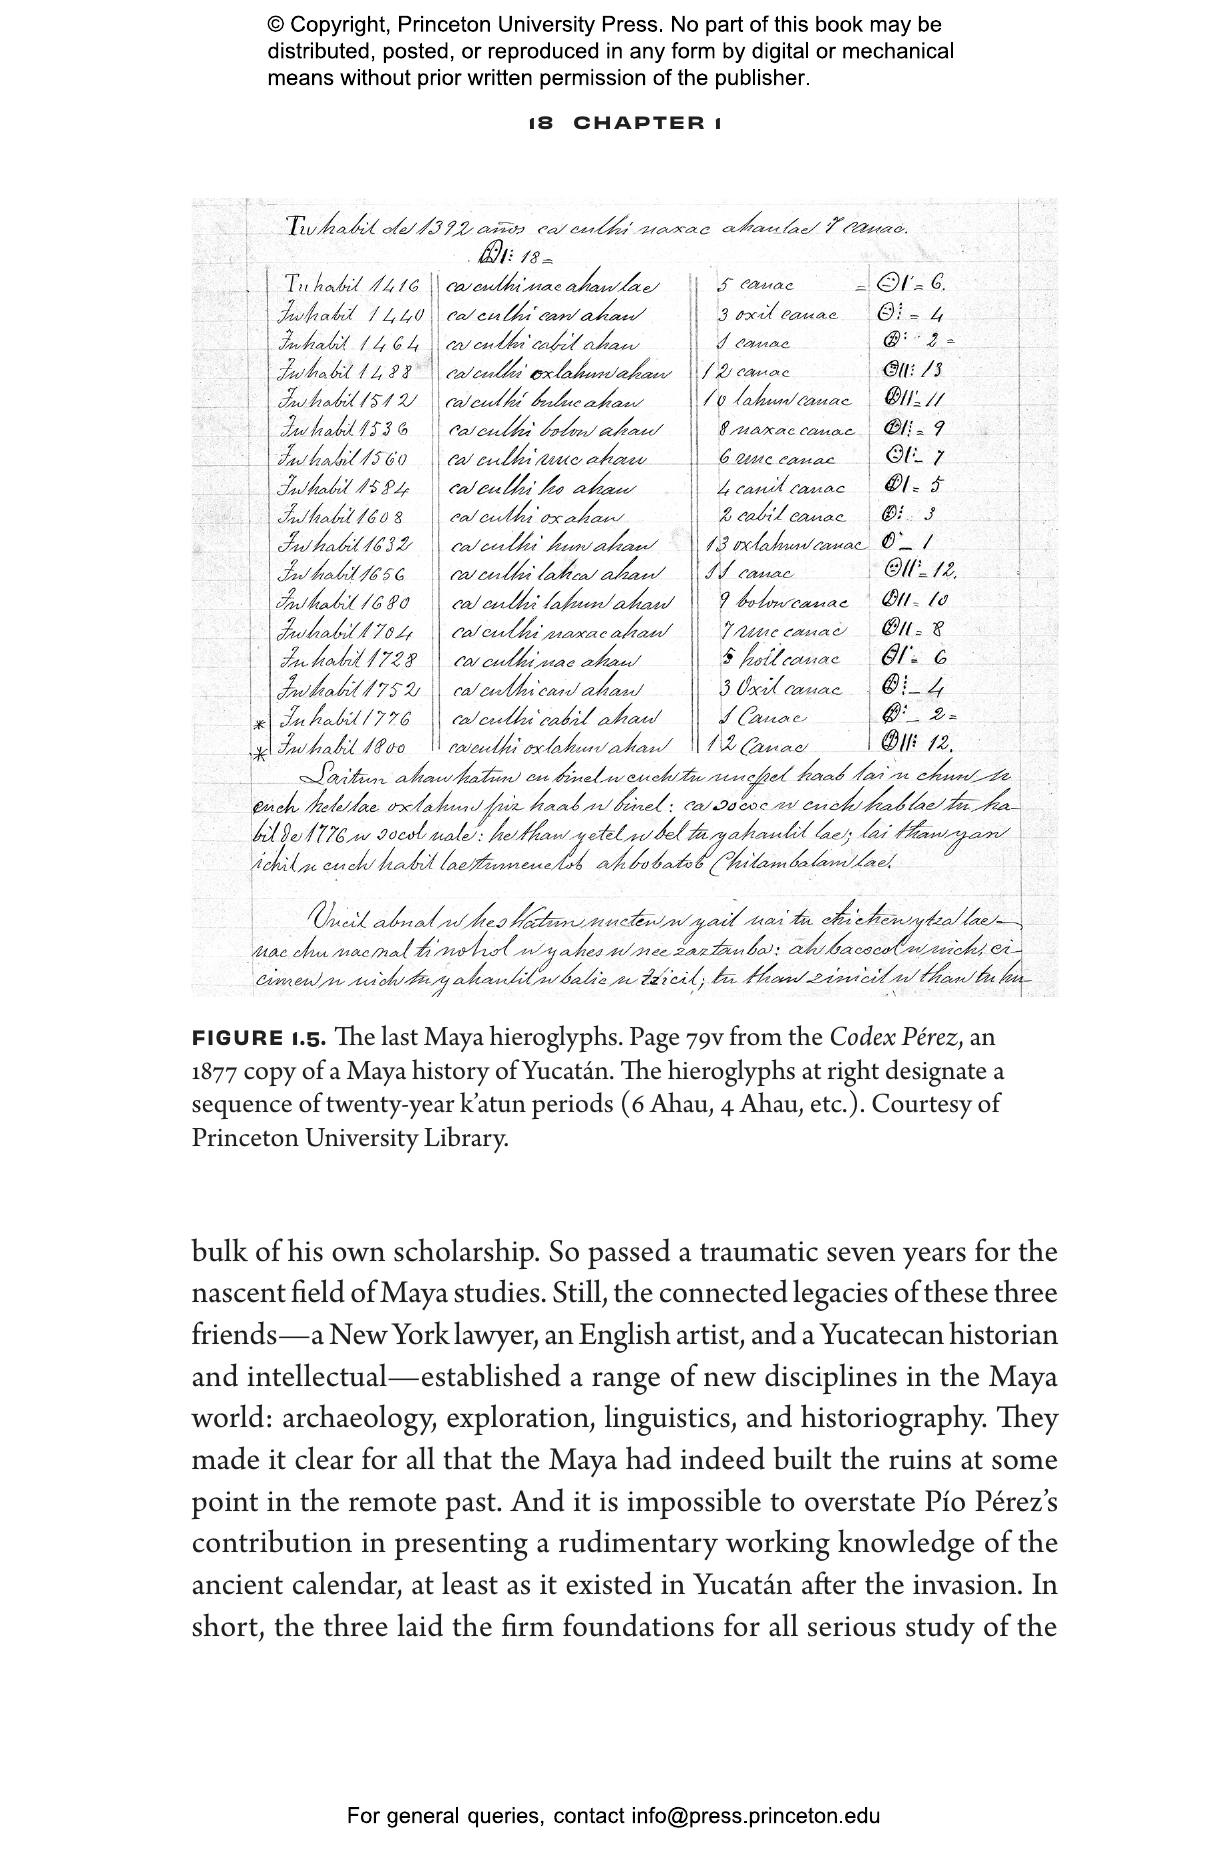 © Copyright, Princeton University Press. No part of this book may be
distributed, posted, or reproduced in any form by digital or mechanical
means without prior written permission of the publisher.
18 CHAPTER 1
Tu habil de 1392 años ca culhi naxac ahau lae 7 canac.
18 =
Tu habil 1416 ca culhi uac ahau lae 5 canac = 6.
Tu habil 1440 ca culhi can ahau 3 oxil canac = 4
Tu habil 1464 ca culhi cabil ahau 1 canac 2 =
Tu habil 1488 ca culhi oxlahun ahau 12 canac 13
Tu habil 1512 ca culhi buluc ahau 10 lahun canac = 11
Tu habil 1536 ca culhi bolon ahau 8 naxac canac = 9
Tu habil 1560 ca culhi uuc ahau 6 uuc canac 7
Tu habil 1584 ca culhi ho ahau 4 canil canac = 5
Tu habil 1608 ca culhi ox ahau 2 cabil canac 3
Tu habil 1632 ca culhi hun ahau 13 oxlahun canac 1
Tu habil 1656 ca culhi lahca ahau 11 canac = 12.
Tu habil 1680 ca culhi lahun ahau 9 bolon canac = 10
Tu habil 1704 ca culhi naxac ahau 7 uuc canac = 8
Tu habil 1728 ca culhi uac ahau 5 hoil canac = 6
Tu habil 1752 ca culhi can ahau 3 Oxil canac 4
* Tu habil 1776 ca culhi cabil ahau 1 Canac 2 =
* Tu habil 1800 ca culhi oxlahun ahau 12 Canac 12.
ahau katun cu binel u cuch tu haab lai u chun u
cuch lae oxlahun haab u binel: ca u cuch hab lae tu ha-
bil de 1776 u socol uale: he than yetel u bel tu yahaulil lae; lai than yan
ichil u cuch habil lae ahbobatob Chilambalam lae.
u katun u yail uai tu chichen ytza lae
ti nohol u u nee u uich, ci-
cimen u uich tu yahaulil u u tzicil; tu than u than tu hu
FIGURE 1.5. The last Maya hieroglyphs. Page 79v from the Codex Pérez, an
1877 copy of a Maya history of Yucatán. The hieroglyphs at right designate a
sequence of twenty-year k’atun periods (6 Ahau, 4 Ahau, etc.). Courtesy of
Princeton University Library.
bulk of his own scholarship. So passed a traumatic seven years for the
nascent field of Maya studies. Still, the connected legacies of these three
friends—a New York lawyer, an English artist, and a Yucatecan historian
and intellectual—established a range of new disciplines in the Maya
world: archaeology, exploration, linguistics, and historiography. They
made it clear for all that the Maya had indeed built the ruins at some
point in the remote past. And it is impossible to overstate Pío Pérez’s
contribution in presenting a rudimentary working knowledge of the
ancient calendar, at least as it existed in Yucatán after the invasion. In
short, the three laid the firm foundations for all serious study of the
For general queries, contact info@press.princeton.edu